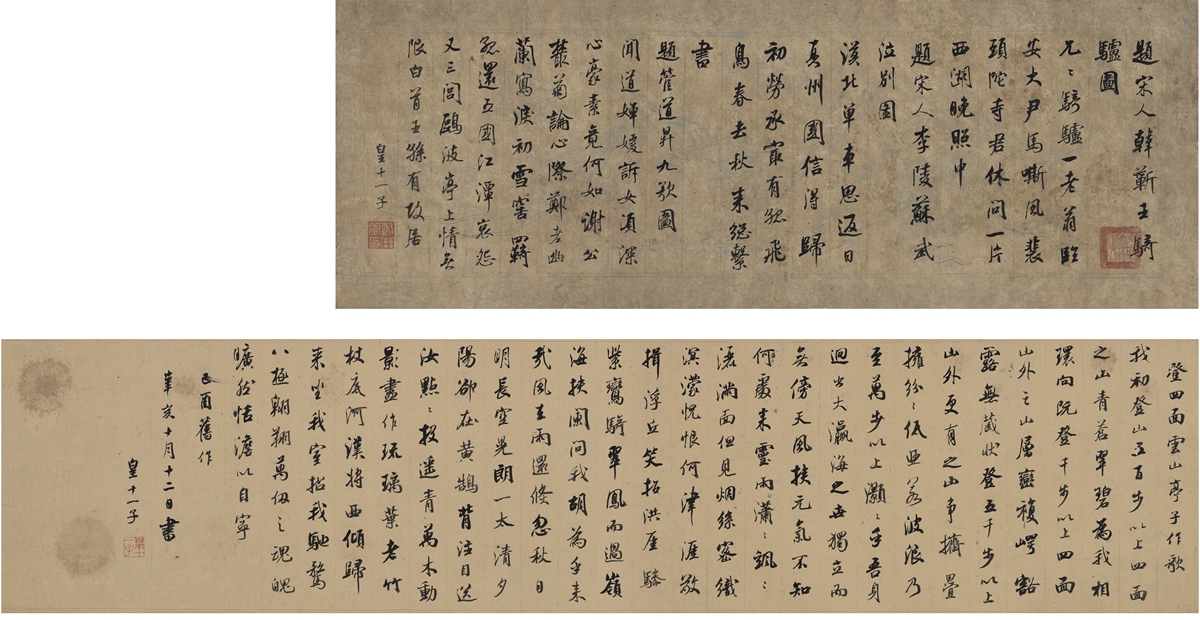 題宋人韓蘄王騎
驢圖
兄〻騎驢一老翁臨
安大尹馬嘶風裴
頭陀寺君休問一片
西湖晚照中
題宋人李陵蘇武
泣別圖
漠北單車思返日
真州國信得歸
初勞承最有能飛
鳥春去秋来總繫
書
題管道昇九歌圖
聞道嬋媛訴女湏深
心豪素竟何如謝公
叢菊論心際鄭老幽
蘭寫淚初雪窖羈
還五國江潭哀怨
又三閭鷗波亭上情無
限白首王孫有故居
皇十一子
登四面雲山亭子作歌
我初登山五百步以上四面
之山青蒼翠碧為我相
環向既登千步以上四面
山外之山層巒複崿豁
露無蔵状登五千步以上
山外更有之山争擠疊
擁紛〻低亞若波浪乃
至萬步以上灝〻乎吾身
迴出大瀛海之世獨立而
無傍天風扶元氣不知
何處来靈雨瀟〻颯〻
灑滿面但見烟絲密織
溟濛怳恨何津涯欲
揖浮丘笑拓洪厓驂
紫鸞騎翠鳳而過嶺
海挾閬問我胡為乎来
哉風至雨還倏忽秋日
明長空晃朗一太清夕
陽卻在黄鵠背注目送
汝點〻投遥青萬木動
影畫作琉璃葉老竹
杖底河漢将西傾歸
来坐我室招我馳騖
八極翱翔萬仭之魂魄
曠然恬澹以自寧
己酉舊作
辛亥十月十二日書
皇十一子